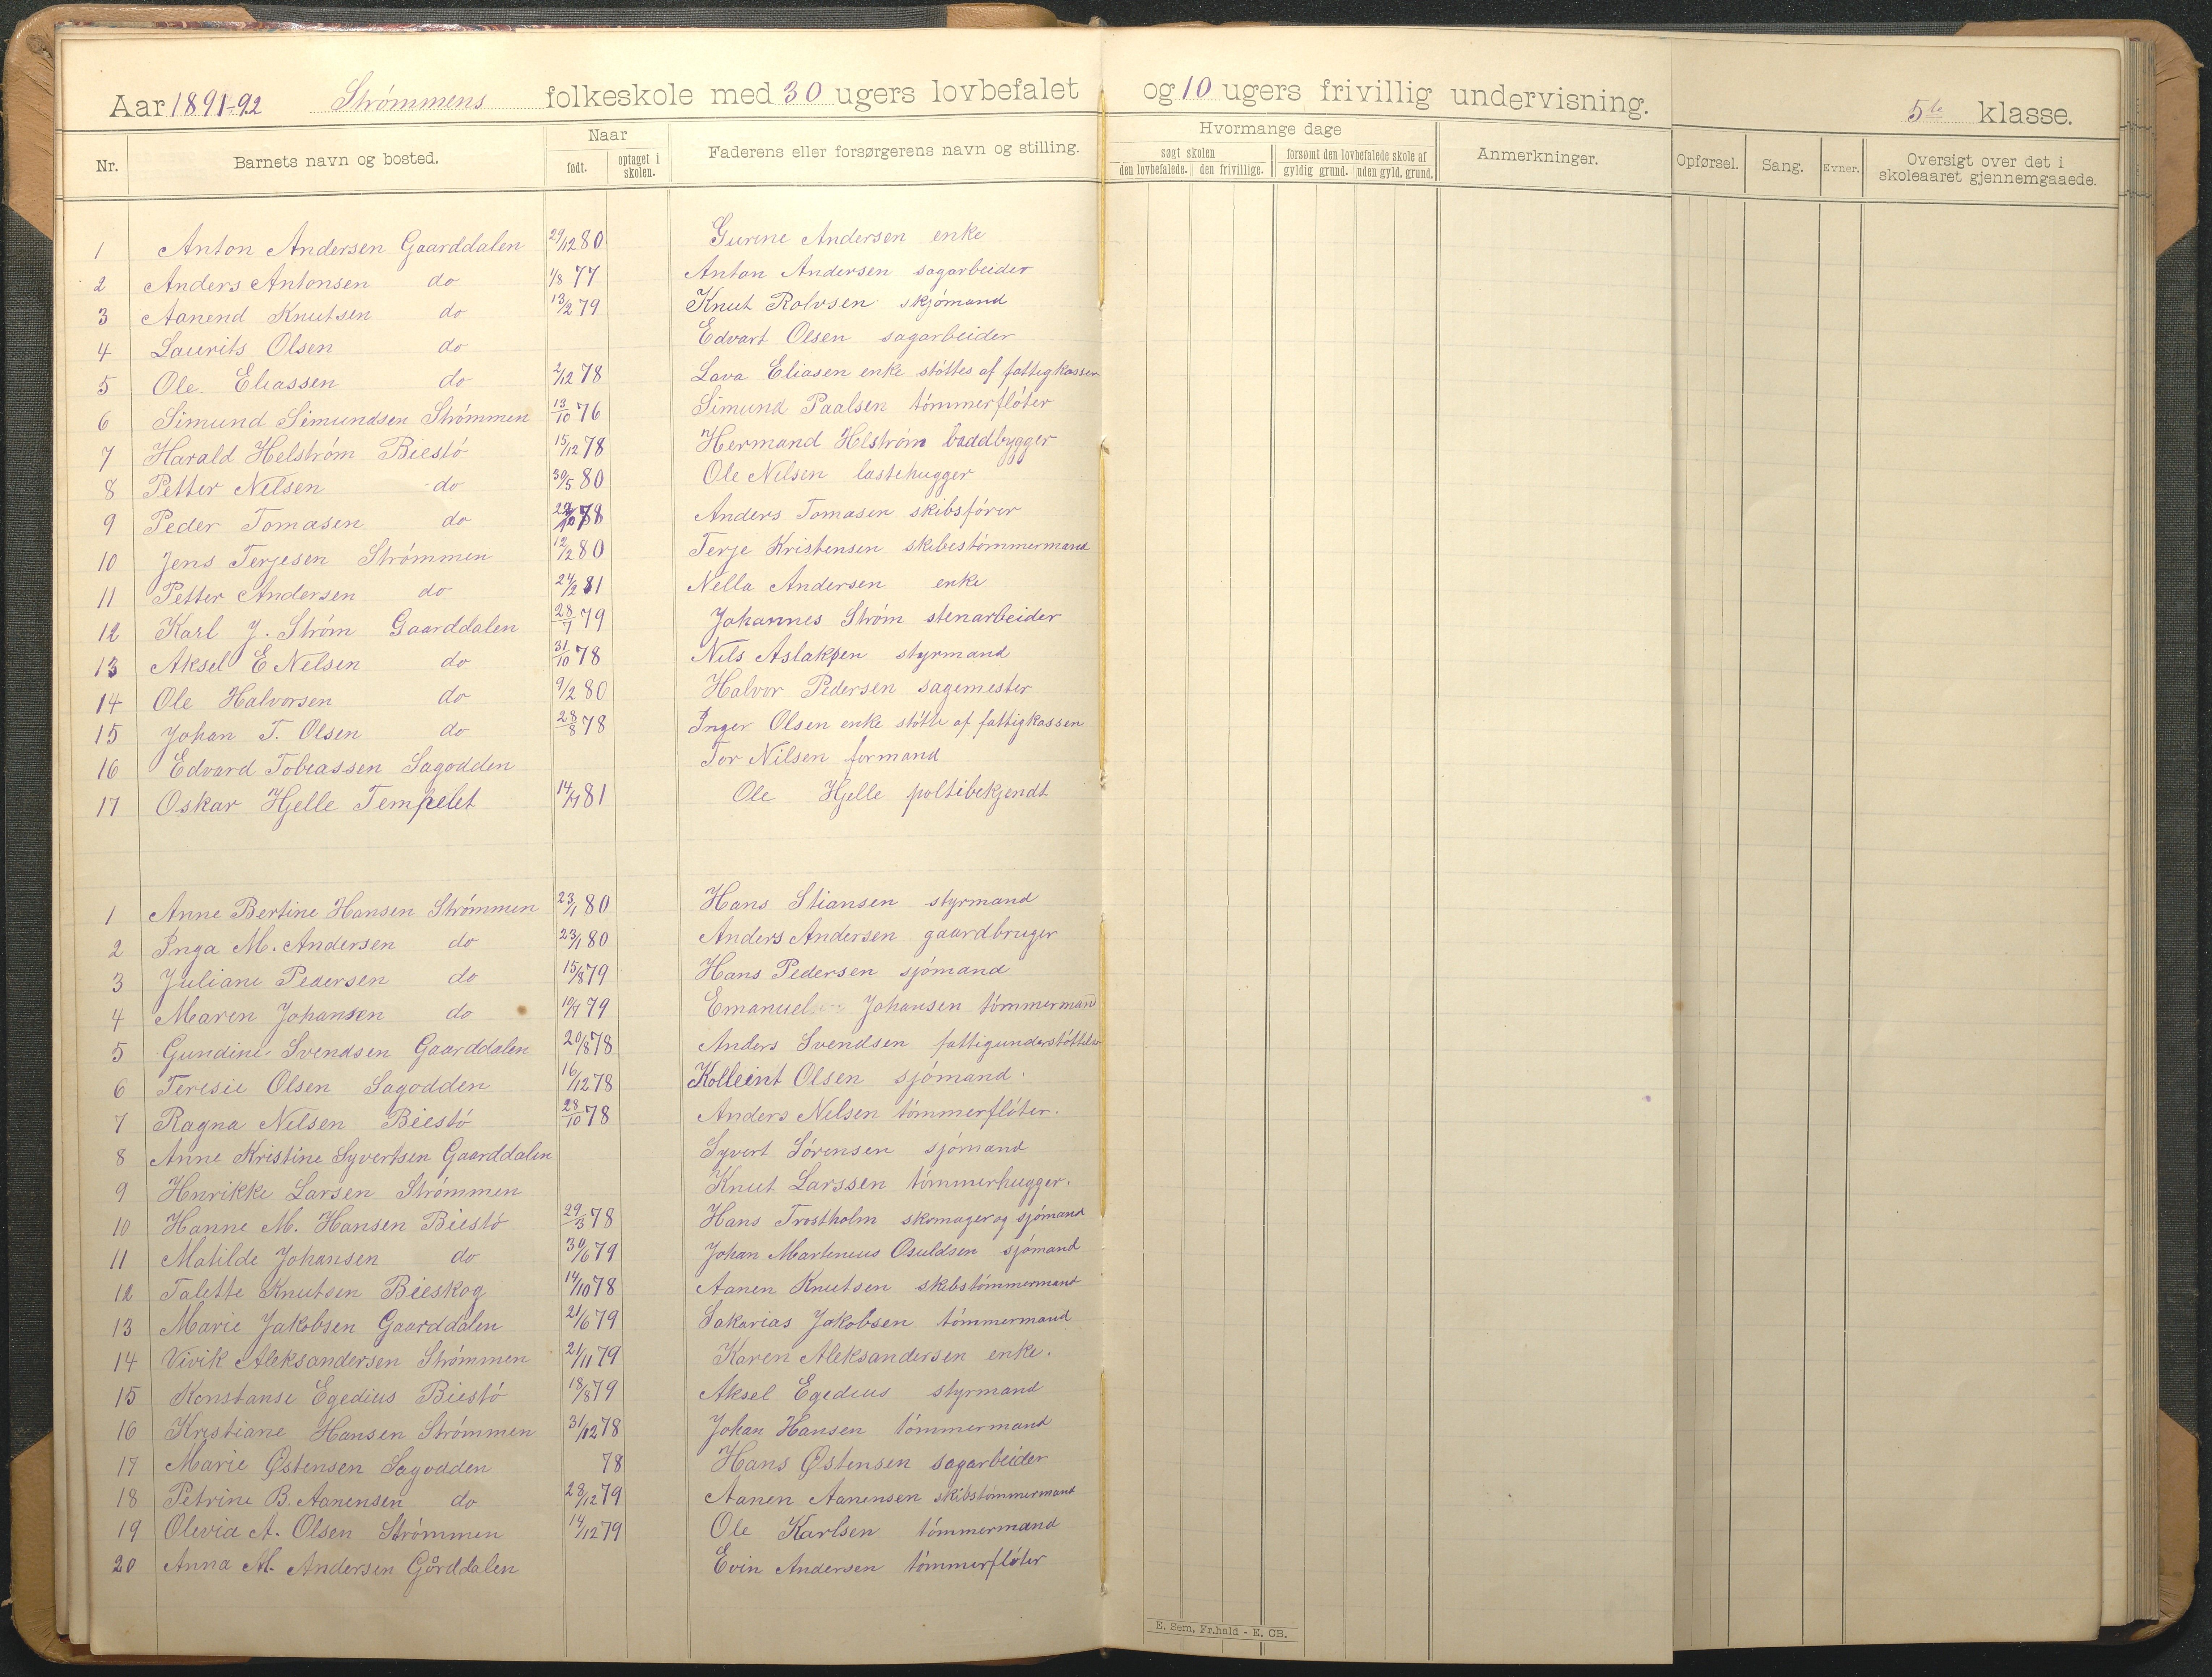 Aar 1891-92 Strømmens folkeskole med 30 ugers lovbefalet og 10 ugers frivillig undervisning. 5te klasse.
Nr. Barnets navn og bosted. Naar født. optaget i skolen. Faderens eller forsørgerens navn og stilling. Hvormange dage søgt skolen den lovbefalede. den frivillige. forsømt den lovbefalede skole af gyldig grund. uden gyld. grund. Anmerkninger. Opførsel. Sang. Evner. Oversigt over det i skoleaaret gjennemgaaede.
1 Anton Andersen Gaarddalen 29/12 80 Gurine Andersen enke
2 Anders Antonsen do 1/8 77 Anton Andersen sagarbeider
3 Aanend Knutsen do 13/2 79 Knut Rolvsen skjømand
4 Laurits Olsen do Edvart Olsen sagarbeider
5 Ole Eliassen do 2/12 78 Lava Eliasen enke støttes af fattigkassen
6 Simund Simundsen Strømmen 13/10 76 Simund Paalsen tømmerfløter
7 Harald Helstrøm Biestø 15/12 78 Hermand Helstrøm baadbygger
8 Petter Nilsen do 30/5 80 Ole Nilsen lastehugger
9 Peder Tomasen do 78 Anders Tomasen skibsfører
10 Jens Terjesen Strømmen 12/2 80 Terje Kristensen skibestømmermand
11 Petter Andersen do 24/2 81 Nella Andersen enke
12 Karl J. Strøm Gaarddalen 28/7 79 Johannes Strøm stenarbeider
13 Aksel E Nilsen do 31/10 78 Nils Aslaksen styrmand
14 Ole Halvorsen do 9/2 80 Halvor Pedersen sagemester
15 Johan T. Olsen do 28/8 78 Inger Olsen enke støtte af fattigkassen
16 Edvard Tobiassen Sagodden Tor Nilsen formand
17 Oskar Hjelle Tempelet 14/7 81 Ole Hjelle poltibekjendt
1 Anne Bertine Hansen Strømmen 23/1 80 Hans Stiansen styrmand
2 Inga M. Andersen do 23/1 80 Anders Andersen gaardbruger
3 Juliane Pedersen do 15/8 79 Hans Pedersen sjømand
4 Maren Johansen do 10/7 79 Emanuel Johansen tømmermand
5 Gundine Svendsen Gaarddalen 20/8 78 Anders Svendsen fattigunderstøttelse
6 Teresie Olsen Sagodden 16/12 78 Kolleint Olsen sjømand.
7 Ragna Nilsen Biestø 28/10 78 Anders Nilsen tømmerfløter.
8 Anne Kristine Syvertsen Gaarddalen Syvert Sørensen sjømand
9 Hnrikke Larsen Strømmen Knut Larssen tømmerhugger.
10 Hanne M. Hansen Biestø 29/3 78 Hans Trostholm skomager og sjømand
11 Matilde Johansen do 30/6 79 Johan Martinius Osuldsen sjømand
12 Talette Knutsen Bieskog 14/10 78 Aanen Knutsen skibstømmermand
13 Marie Jakobsen Gaarddalen 21/6 79 Sakarias Jakobsen tømmermand
14 Vivik Aleksandersen Strømmen 21/11 79 Karen Aleksandersen enke.
15 Konstanse Egedius Biestø 18/8 79 Aksel Egedius styrmand
16 Kristiane Hansen Strømmen 31/12 78 Johan Hansen tømmermand
17 Marie Østensen Sagodden 78 Hans Østensen sagarbeider
18 Petrine B. Aanensen do 28/12 79 Aanen Aanensen skibstømmermand
19 Olevia A. Olsen Strømmen 14/12 79 Ole Karlsen tømmermand
20 Anna M. Andersen Gårddalen Evin Andersen tømmerfløter
E. Sem, Fr.hald - E. CB.